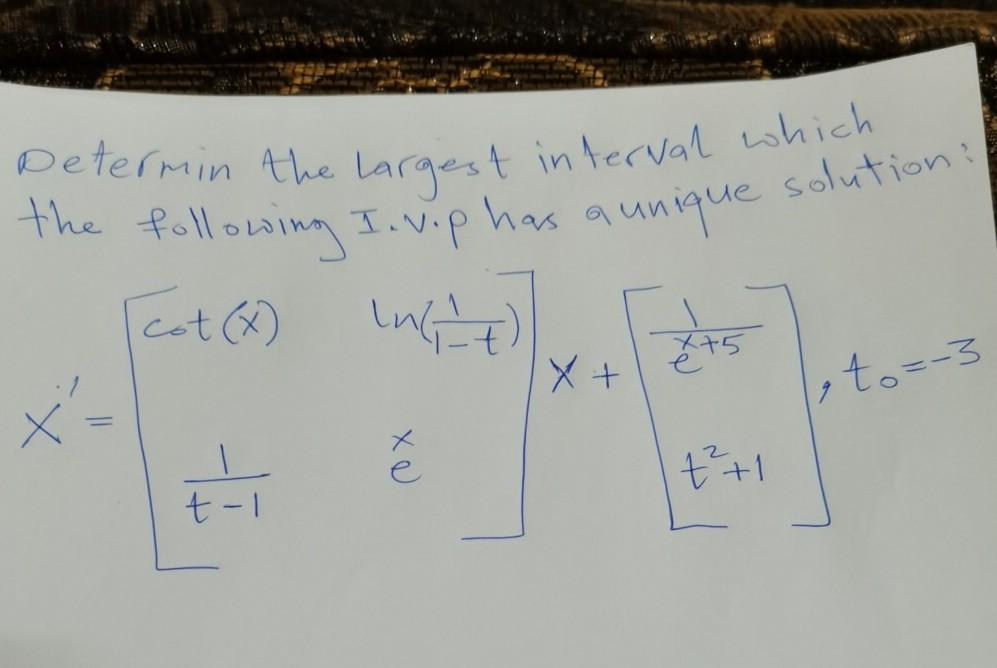 Determin the largest interval which
the following I.V.p has a unique solution:
X' = [cot(x) ln(1/(1-t))] X + [1/(e^x+5)], t₀=-3
[1/(t-1) e^x] [t²+1]